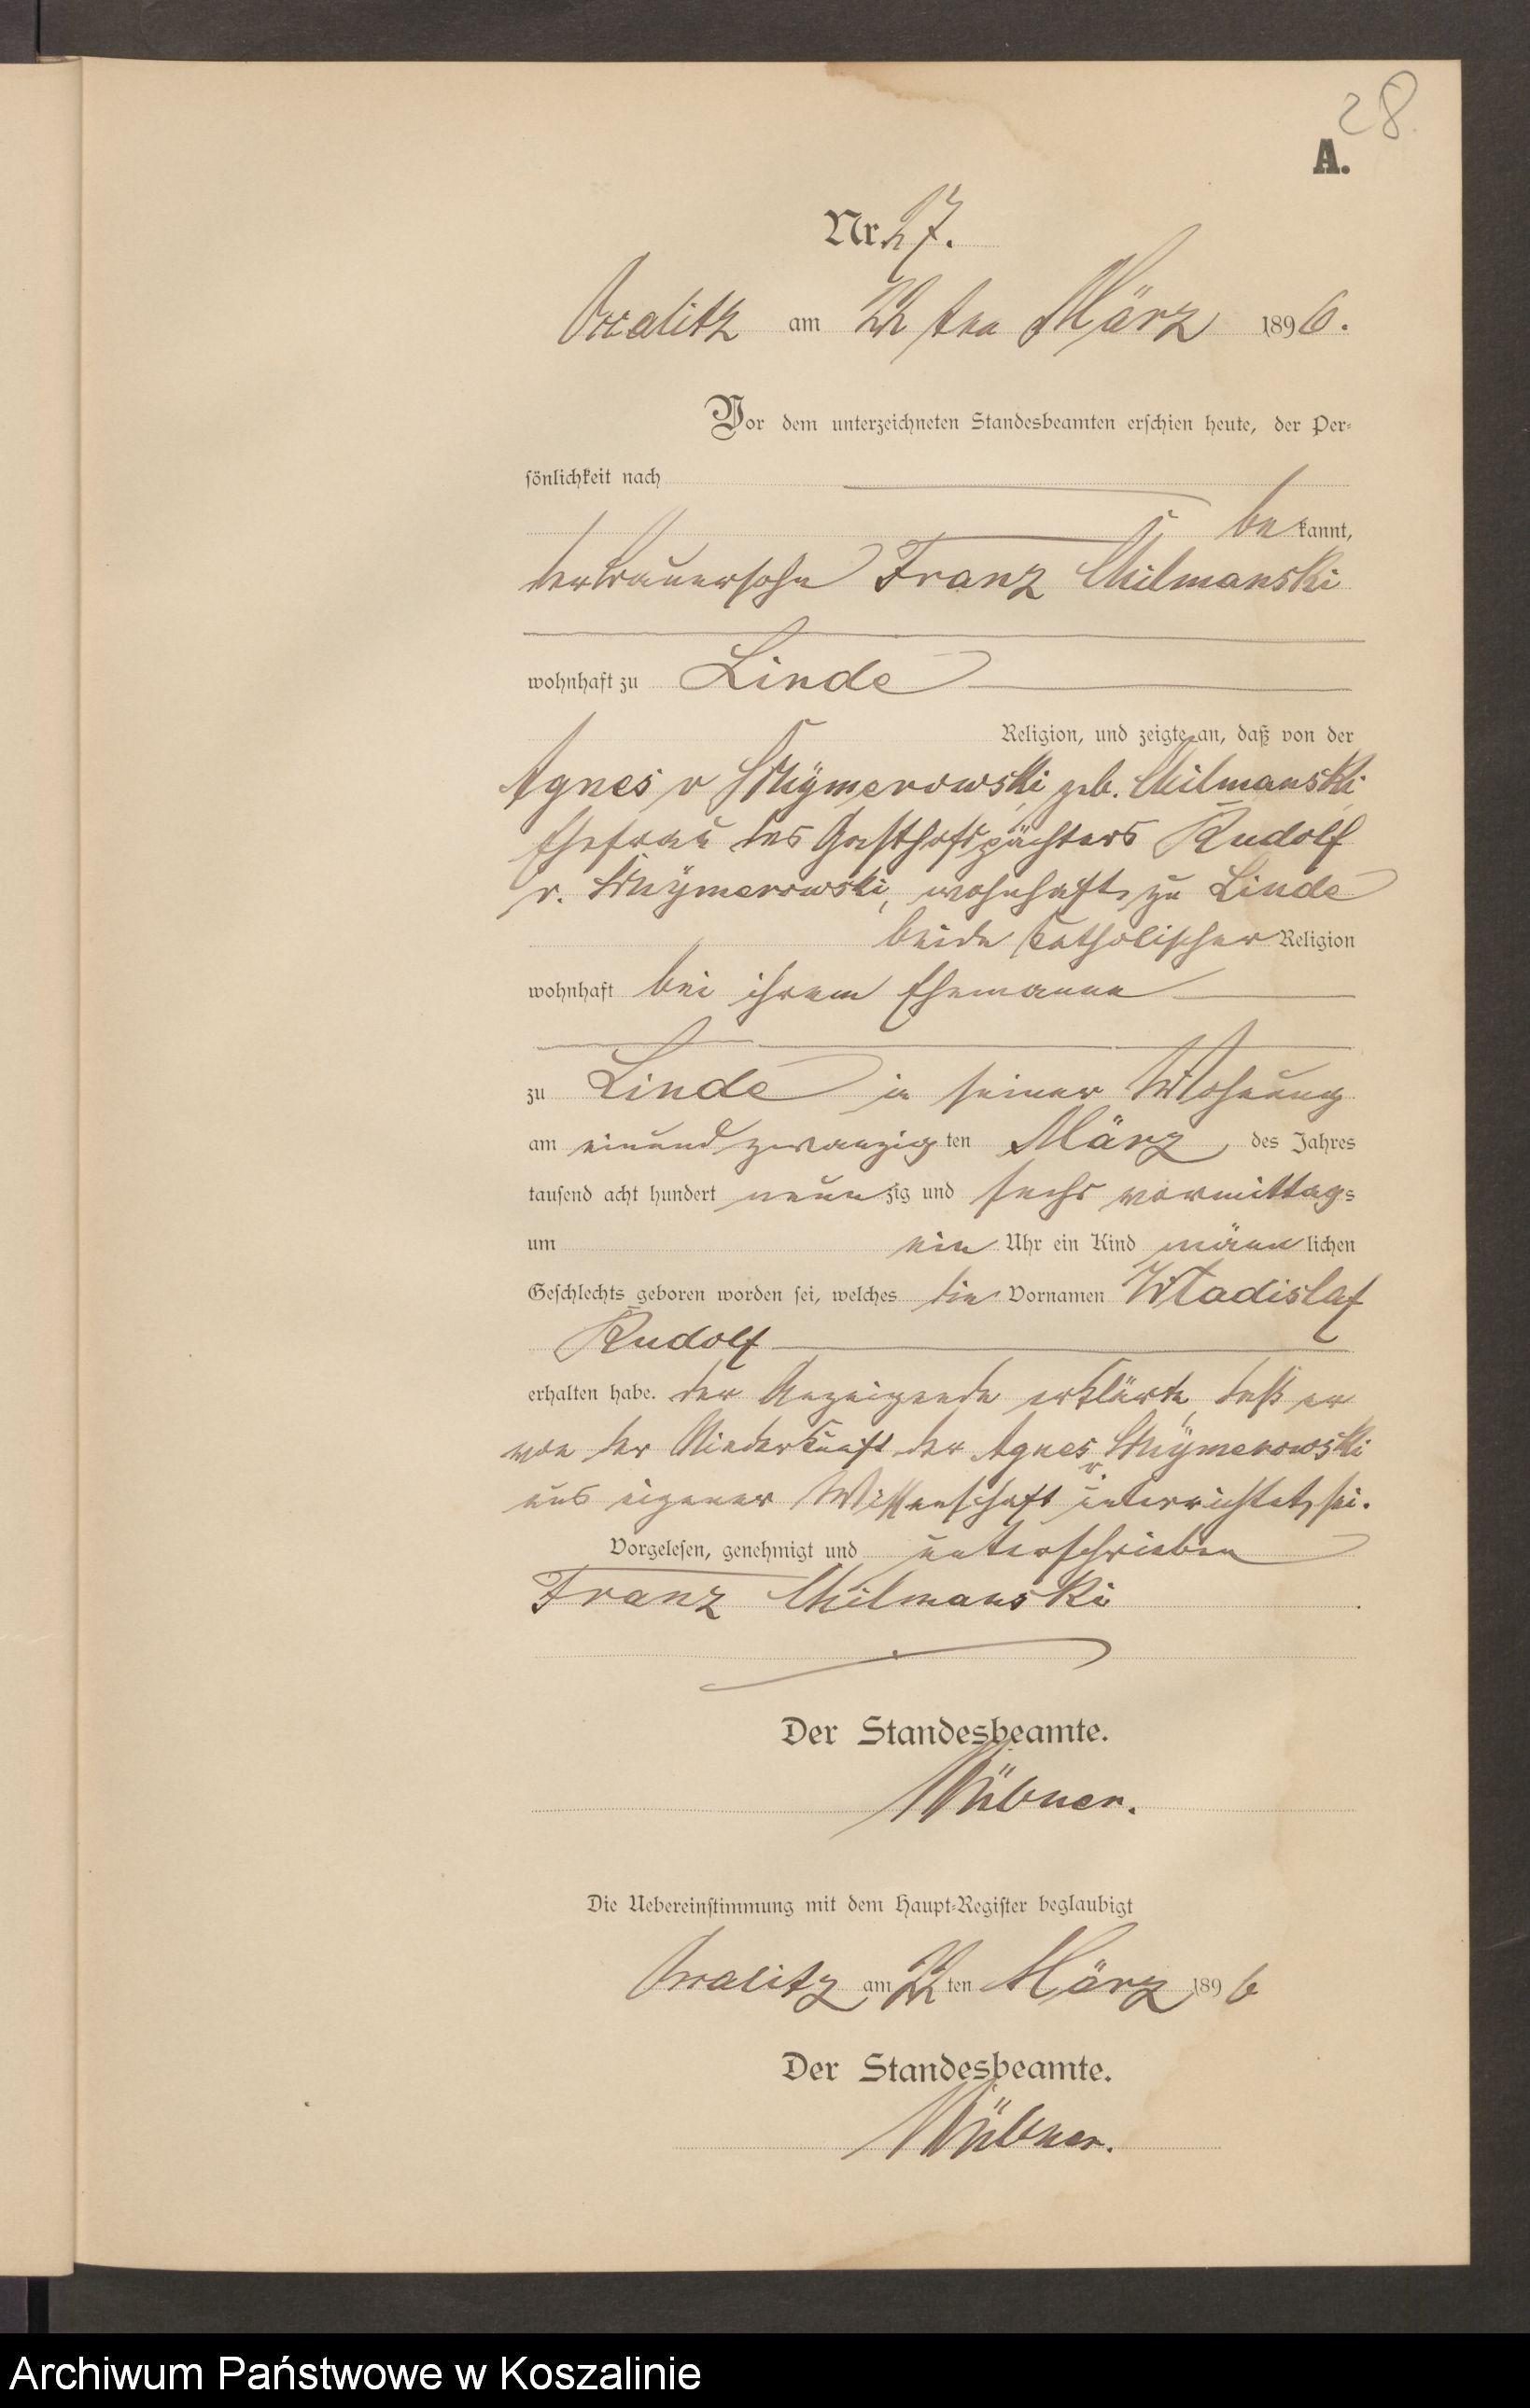 28.
A.
Nr. 27.
am 22 ten März 1896.
Vor dem unterzeichneten Standesbeamten erschien heute, der Per-
sönlichkeit nach
be kannt,
der Bauersohn Franz
wohnhaft zu Linde
Religion, und zeigte an, daß von der
Agnes v geb.
Ehefrau des Gasthofspächters Rudolf
v. wohnhaft zu Linde
beide katholischer Religion
wohnhaft bei ihrem Ehemanne
zu Linde in seiner Wohnung
am einundzwanzig ten März des Jahres
tausend acht hundert neun zig und sechs vormittags
um ein Uhr ein Kind männ lichen
Geschlechts geboren worden sei, welches die Vornamen Wladislaf
Rudolf
erhalten habe. der Anzeigende erklärte, daß er
von der Niederkunft der Agnes v.
aus eigener Wissenschaft unterrichtet sei.
Vorgelesen, genehmigt und unterschrieben
Franz
Der Standesbeamte.
Die Uebereinstimmung mit dem Haupt-Register beglaubigt
am 22 ten März 1896
Der Standesbeamte.
Archiwum Państwowe w Koszalinie